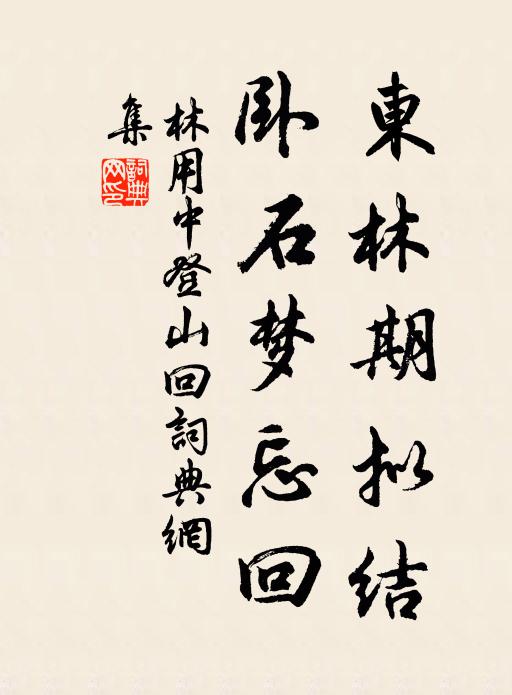 東林期拟结
卧石梦忘回
林用中登山回詞典網
集
詞典網印